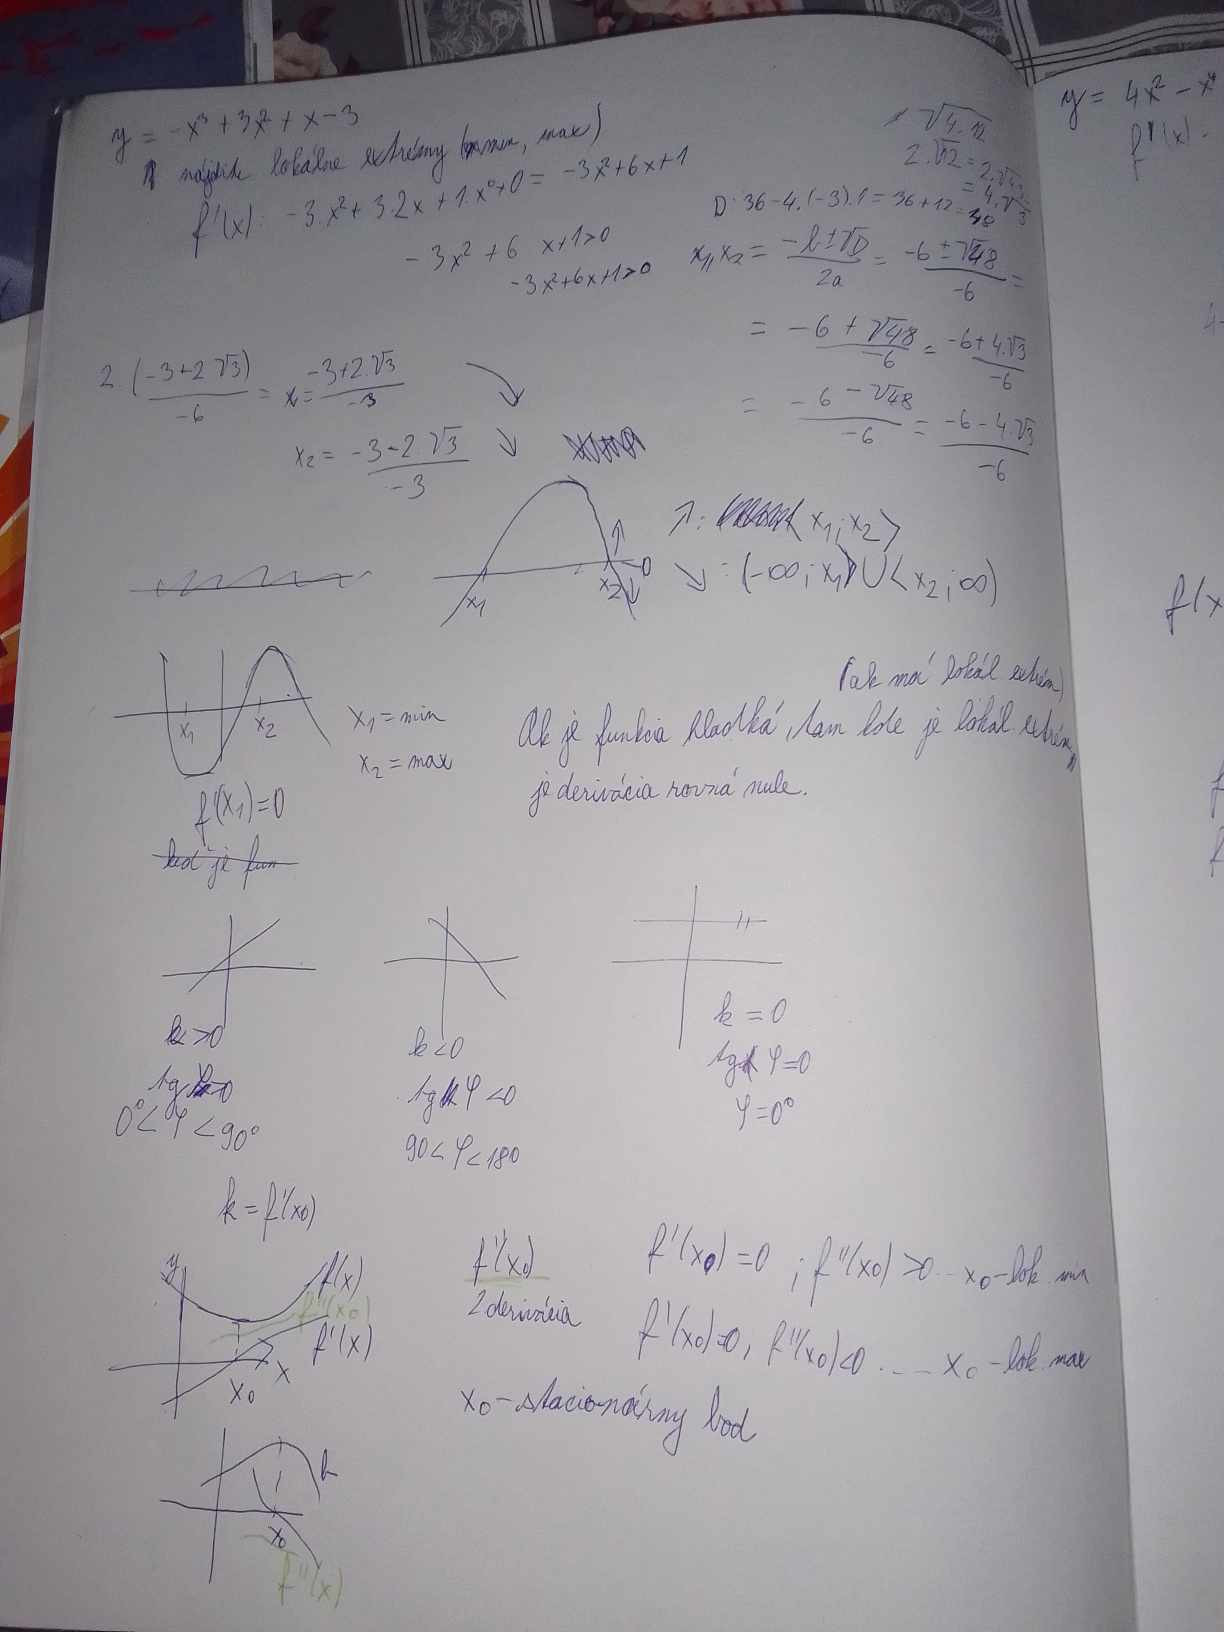 y = -x³ + 3x² + x - 3
nájdite lokálne extrémy (min, max)
f'(x): -3.x² + 3.2x + 1.x⁰ + 0 = -3x² + 6x + 1
-3x² + 6x + 1 > 0
-3x² + 6x + 1 > 0
√4.12
2.√12 = 2.√4.3
= 4.√3
D: 36 - 4.(-3).1 = 36 + 12 = 48
x₁, x₂ = (-b ± √D)/2a = (-6 ± √48)/-6 =
= (-6 + √48)/-6 = (-6 + 4.√3)/-6
= (-6 - √48)/-6 = (-6 - 4.√3)/-6
2.(-3 + 2√3)/-6 = x₁ = (-3 + 2.√3)/-3
x₂ = (-3 - 2√3)/-3
x₁ x₂
↗: <x₁; x₂>
↘: (-∞; x₁> ∪ <x₂; ∞)
x₁ x₂
x₁ = min
x₂ = max
f'(x₁) = 0
(ak má lokál extrém)
Ak je funkcia hladká, tam kde je lokál. extrém,
je derivácia rovná nule.
keď je fun
k > 0
tg φ > 0
0° < φ < 90°
k < 0
tg φ < 0
90 < φ < 180
k = 0
tg φ = 0
φ = 0°
k = f'(x₀)
y
f(x)
f''(x₀)
f'(x)
x₀ x
f''(x₀)
2 derivácia
f'(x₀) = 0 ; f''(x₀) > 0 ... x₀ - lok. min
f'(x₀) = 0, f''(x₀) < 0 ... x₀ - lok. max
x₀ - stacionárny bod
x₀
f''(x)
y = 4x² - x⁴
f'(x):